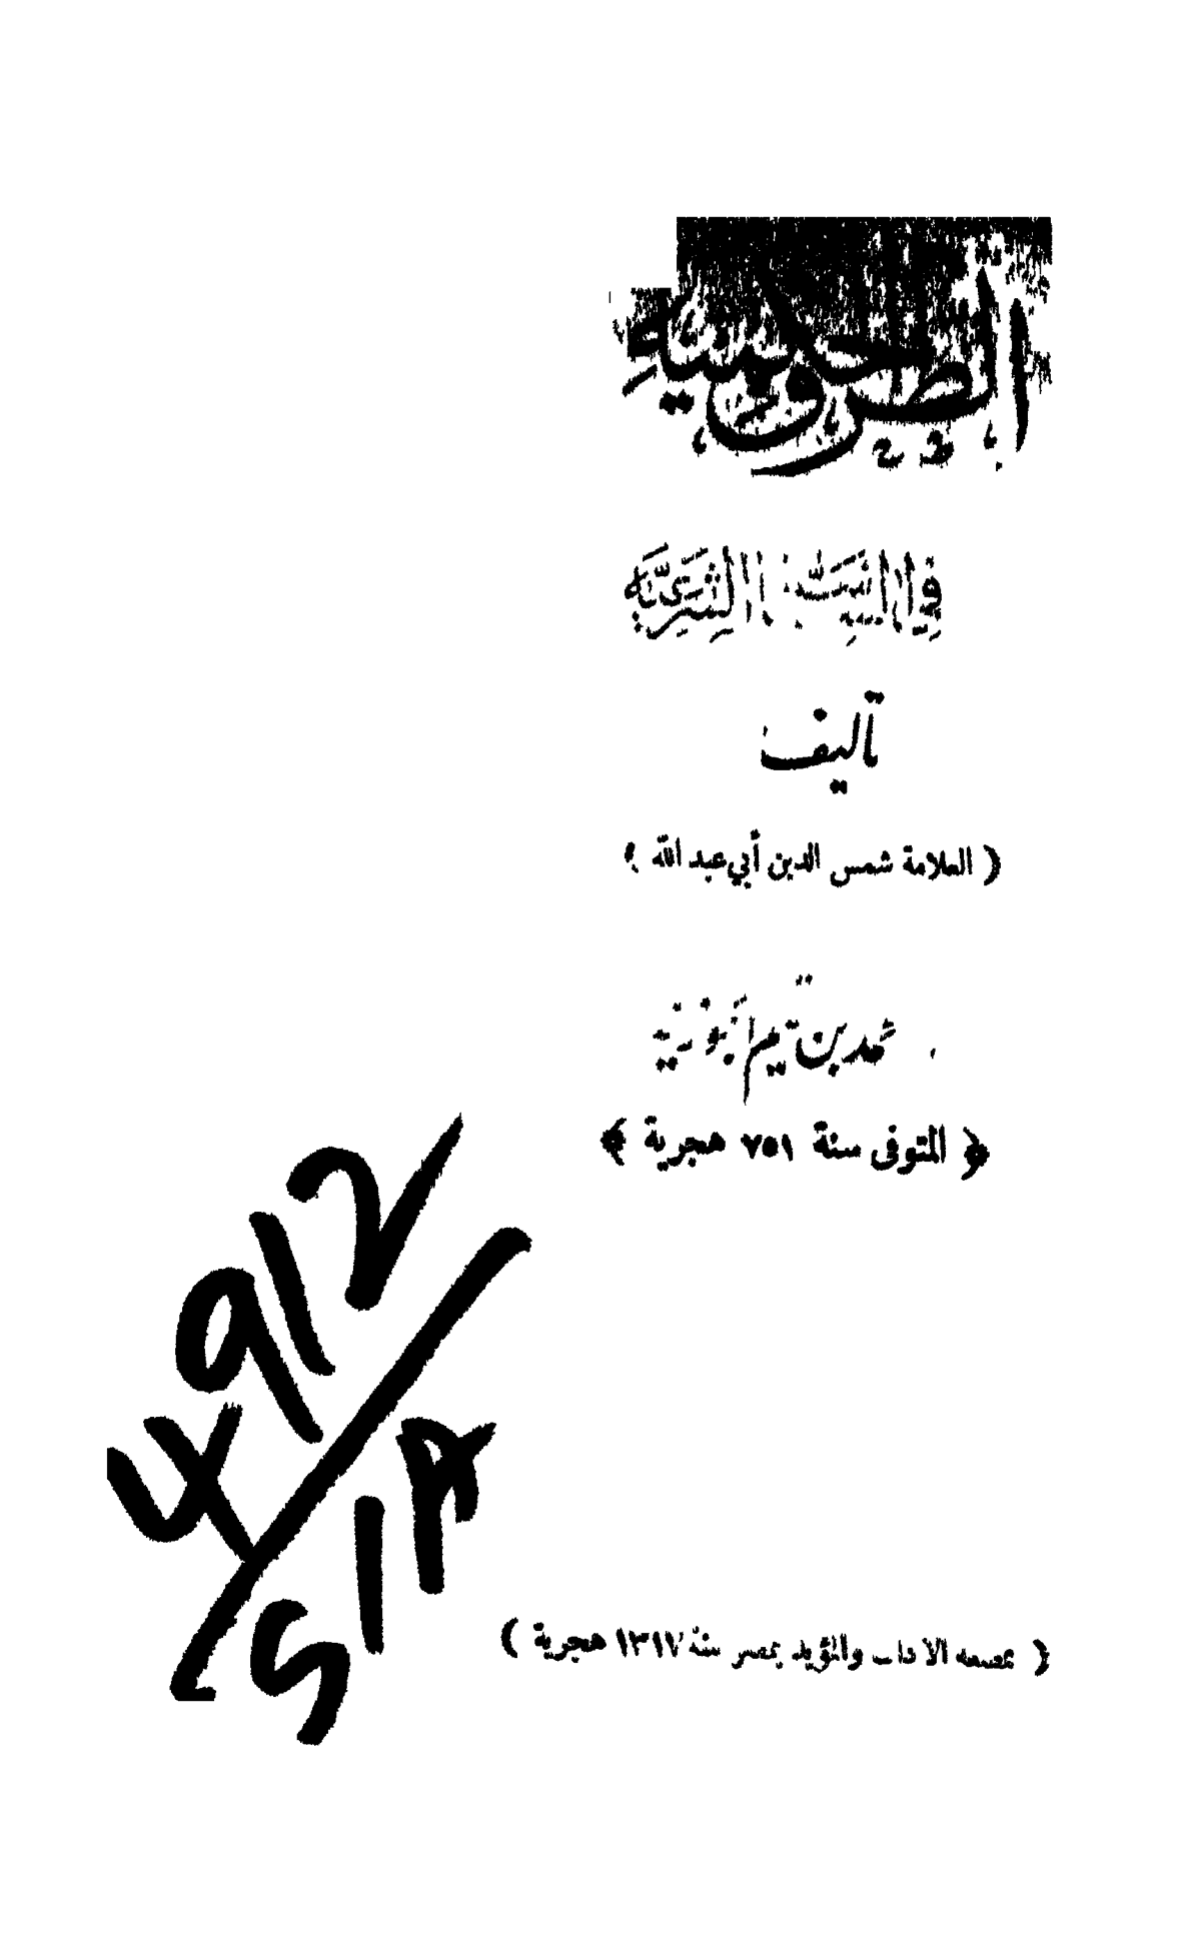 الطرق الحكمية
في السياسة الشرعية
تأليف
﴿ العلامة شمس الدين أبي عبد الله ﴾
محمد بن قيم الجوزية
﴿ المتوفى سنة ٧٥١ هجرية ﴾
4912
SIA
( بمطبعة الآداب والمؤيد بمصر سنة ١٣١٧ هجرية )